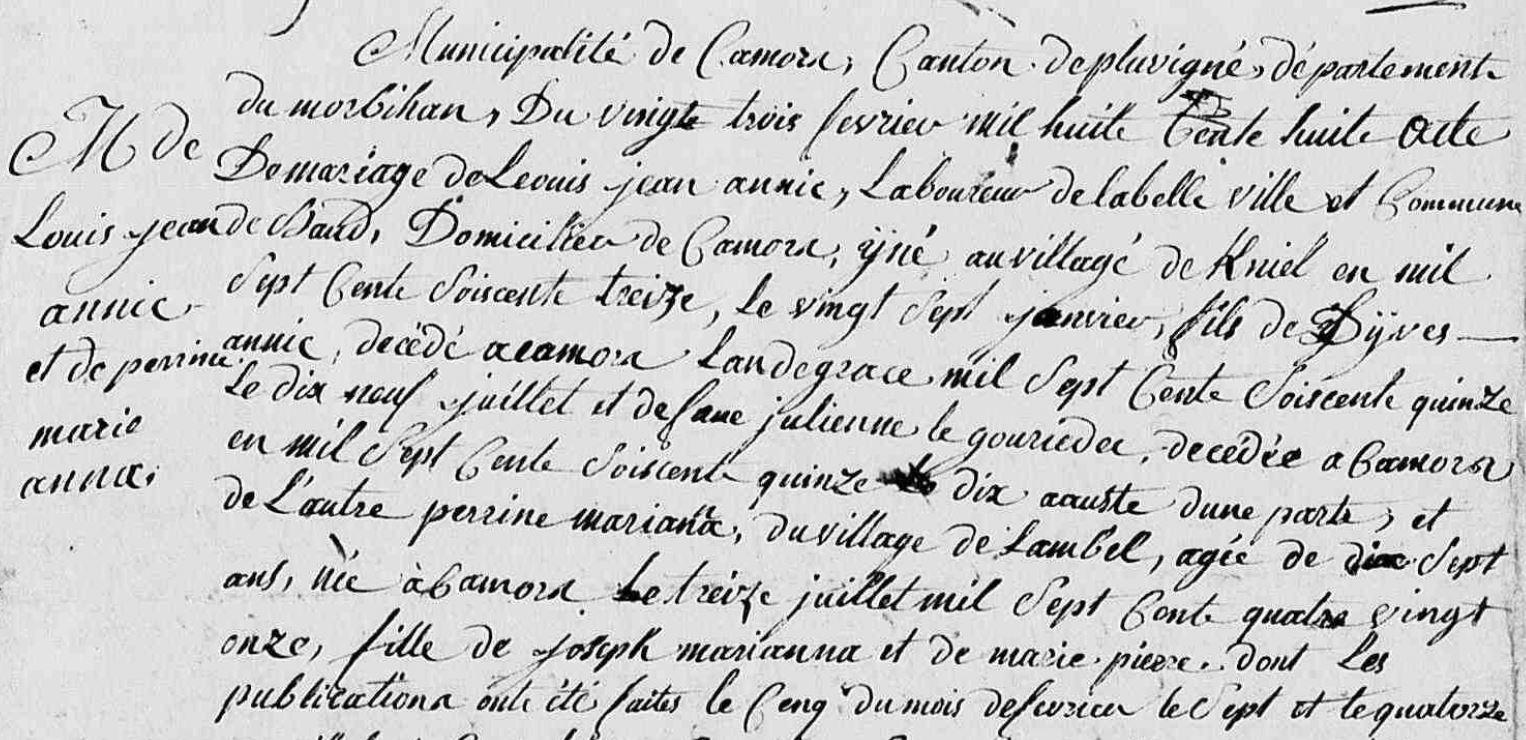 Municipalité de Camors, Canton de pluvigné, département
du morbihan, Du vingte trois fevrier mil huite Cente huite Acte
De mariage de Leouis jean annic, Laboureur de labelle ville et Commune
de Baud, Domicilier de Camors, ijné au villagé de Kniel en mil
Sept Cente Soiscente treize, le vingt Sept janvier, fils de Dijves
annic, decédé a camors Lan de grace mil Sept Cente Soiscente quinze
Le dix neuf juillet et de faue julienne le gouriedec, decédée a Camors
en mil Sept Cente Soiscente quinze dix aauste dune parte, et
de L'autre perrine marianna, du village de Lambel, agée de dix Sept
ans, née à Camors Le treize juillet mil Sept Cente quatre vingt
onze, fille de joseph marianna et de marie pierre. dont Les
publications onte été faites le Cenq du mois de fevrier le Sept et le quatorze
M de
Louis jean
annic
et de perrine
marie
anna.